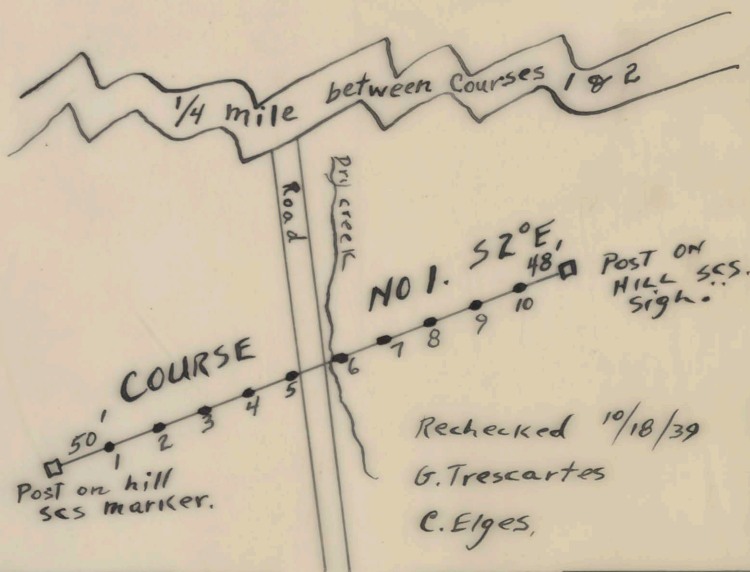 1/4 mile between Courses 1 & 2
Road
Dry creek
COURSE NO 1. S 2° E,
50'
48'
1 2 3 4 5 6 7 8 9 10
POST ON
HILL SCS.
Sign.
Post on hill
SCS marker.
Rechecked 10/18/39
G. Trescartes
C. Elges.